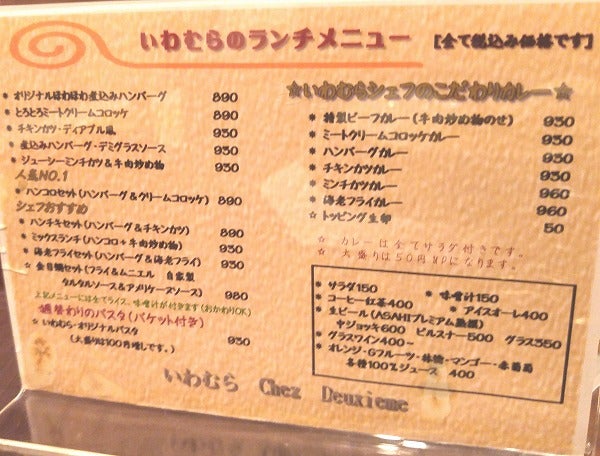 いわむらのランチメニュー [全て税込み価格です]
* オリジナルほわほわ煮込みハンバーグ 890
* とろとろミートクリームコロッケ 890
* チキンカツ・ディアブル風 930
* 煮込みハンバーグ・デミグラスソース 930
* ジューシーミンチカツ&牛肉炒め物 930
人気NO.1
* ハンコロセット(ハンバーグ&クリームコロッケ) 890
シェフおすすめ
* ハンチキセット(ハンバーグ&チキンカツ) 890
* ミックスランチ(ハンコロ+牛肉炒め物) 930
* 海老フライセット(ハンバーグ&海老フライ) 930
☆ 金目鯛セット(フライ&ムニエル 自家製
タルタルソース&アメリケーヌソース) 980
上記メニューには全てライス、味噌汁が付きます(おかわりOK)
週替わりのパスタ(バケット付き)
☆ いわむら・オリジナルパスタ 930
(大盛りは100円増しです。)
☆いわむらシェフのこだわりカレー☆
* 特製ビーフカレー(牛肉炒め物のせ) 930
* ミートクリームコロッケカレー 930
* ハンバーグカレー 930
* チキンカツカレー 930
* ミンチカツカレー 960
* 海老フライカレー 960
☆ トッピング生卵 50
☆ カレーは全てサラダ付きです。
☆ 大盛りは50円UPになります。
* サラダ150 * 味噌汁150
* コーヒー紅茶400 * アイスオーレ400
* 生ビール(ASAHIプレミアム熟撰)
中ジョッキ600 ピルスナー500 グラス350
* グラスワイン400~
* オレンジ・Gフルーツ・林檎・マンゴー・赤葡萄
各種100%ジュース 400
いわむら Chez Deuxieme